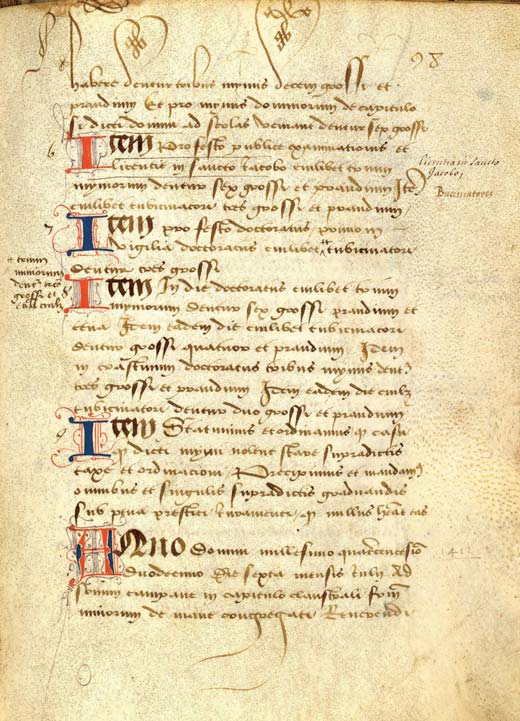 98
habere dentur tribus mymis decem grossi et
prandium Et pro mymis dominorum de capitulo
si dicti domini ad scolas veniant dentur sex grossi
6 Item Pro festo publice examinationis et
licentie in sancto Jacobo cuilibet trium
mymorum dentur sex grossi et prandium Ite
cuilibet tubicinatori tres grossi et prandium
licentia in sancto
Jacobo
Buccinatores
7 Item pro festo doctoratus primo in
vigilia doctoratus cuilibet tubicinatori
dentur tres grossi
et trium
mimorum
dent tres
grossi et
8 Item In die doctoratus cuilibet trium
mymorum dentur sex grossi prandium et
cena Item eadem die cuilibet tubicinatori
dentur grossi quatuor et prandium Idem
in crastinum doctoratus tribus mymis dent
tres grossi et prandium Idem eadem die cuilz
tubicinatori dentur duo grossi et prandium
9 Item Statuimus et ordinamus q casu
q dicti mymi nolent stare supradictis
taxe et ordinacioni Precipimus et mandam
omnibus et singulis supradictis graduandis
sub pena prestiti iuramenti q nullus heat eos
Anno Domini millesimo quadcentesio
duodecimo Die sexta mensis Iulij Ad
sonum campane in capitulo claustrali frum
minorum de mane congregati Reverendi
1412